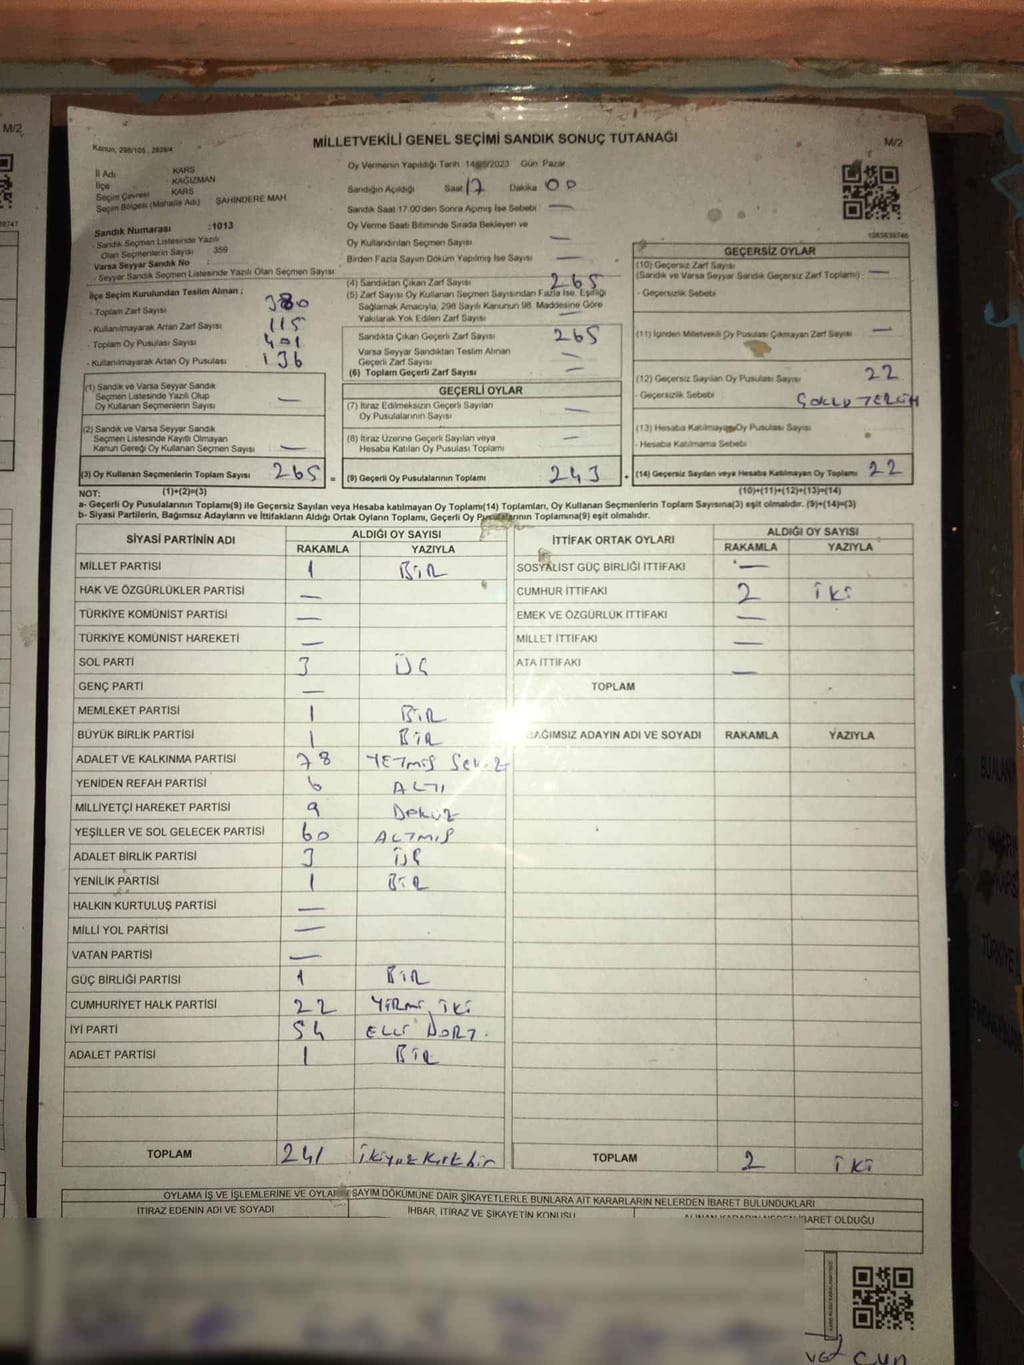 M/2
MİLLETVEKİLİ GENEL SEÇİMİ SANDIK SONUÇ TUTANAĞI
M/2
Kanun: 298/105, 2839/4
İl Adı KARS
İlçe KAĞIZMAN
Seçim Çevresi KARS
Seçim Bölgesi (Mahalle Adı) ŞAHİNDERE MAH
Sandık Numarası :1013
- Sandık Seçmen Listesinde Yazılı
Olan Seçmenlerin Sayısı 359
Varsa Seyyar Sandık No
- Seyyar Sandık Seçmen Listesinde Yazılı Olan Seçmen Sayısı
İlçe Seçim Kurulundan Teslim Alınan ;
- Toplam Zarf Sayısı 380
- Kullanılmayarak Artan Zarf Sayısı 115
- Toplam Oy Pusulası Sayısı 401
- Kullanılmayarak Artan Oy Pusulası 136
(1) Sandık ve Varsa Seyyar Sandık
Seçmen Listesinde Yazılı Olup
Oy Kullanan Seçmenlerin Sayısı —
(2) Sandık ve Varsa Seyyar Sandık
Seçmen Listesinde Kayıtlı Olmayan
Kanun Gereği Oy Kullanan Seçmen Sayısı —
(3) Oy Kullanan Seçmenlerin Toplam Sayısı 265 =
Oy Vermenin Yapıldığı Tarih 14/05/2023 Gün Pazar
Sandığın Açıldığı Saat 17 Dakika 00
Sandık Saat 17:00'den Sonra Açımış İse Sebebi —
Oy Verme Saati Bitiminde Sırada Bekleyen ve
Oy Kullandırılan Seçmen Sayısı —
Birden Fazla Sayım Döküm Yapılmış İse Sayısı —
(4) Sandıktan Çıkan Zarf Sayısı 265
(5) Zarf Sayısı Oy Kullanan Seçmen Sayısından Fazla İse, Eşitliği
Sağlamak Amacıyla, 298 Sayılı Kanunun 98. Maddesine Göre
Yakılarak Yok Edilen Zarf Sayısı —
Sandıkta Çıkan Geçerli Zarf Sayısı 265
Varsa Seyyar Sandıktan Teslim Alınan
Geçerli Zarf Sayısı —
(6) Toplam Geçerli Zarf Sayısı —
GEÇERLİ OYLAR
(7) İtiraz Edilmeksizin Geçerli Sayılan
Oy Pusulalarının Sayısı —
(8) İtiraz Üzerine Geçerli Sayılan veya
Hesaba Katılan Oy Pusulası Toplamı —
(9) Geçerli Oy Pusulalarının Toplamı 243 +
GEÇERSİZ OYLAR
(10) Geçersiz Zarf Sayısı
(Sandık ve Varsa Seyyar Sandık Geçersiz Zarf Toplamı) —
- Geçersizlik Sebebi
(11) İçinden Milletvekili Oy Pusulası Çıkmayan Zarf Sayısı —
(12) Geçersiz Sayılan Oy Pusulası Sayısı 22
- Geçersizlik Sebebi ÇOKLU TERCİH
(13) Hesaba Katılmayan Oy Pusulası Sayısı
- Hesaba Katılmama Sebebi
(14) Geçersiz Sayılan veya Hesaba Katılmayan Oy Toplamı 22
NOT: (1)+(2)=(3) (10)+(11)+(12)+(13)=(14)
a- Geçerli Oy Pusulalarının Toplamı(9) ile Geçersiz Sayılan veya Hesaba katılmayan Oy Toplam(14) Toplamları, Oy Kullanan Seçmenlerin Toplam Sayısına(3) eşit olmalıdır. (9)+(14)=(3)
b- Siyasi Partilerin, Bağımsız Adayların ve İttifakların Aldığı Ortak Oyların Toplamı, Geçerli Oy Pusulalarının Toplamına(9) eşit olmalıdır.
SİYASİ PARTİNİN ADI ALDIĞI OY SAYISI
RAKAMLA YAZIYLA
MİLLET PARTİSİ 1 BİR
HAK VE ÖZGÜRLÜKLER PARTİSİ —
TÜRKİYE KOMÜNİST PARTİSİ —
TÜRKİYE KOMÜNİST HAREKETİ —
SOL PARTİ 3 ÜÇ
GENÇ PARTİ —
MEMLEKET PARTİSİ 1 BİR
BÜYÜK BİRLİK PARTİSİ 1 BİR
ADALET VE KALKINMA PARTİSİ 78 YETMİŞ SEKİZ
YENİDEN REFAH PARTİSİ 6 ALTI
MİLLİYETÇİ HAREKET PARTİSİ 9 DOKUZ
YEŞİLLER VE SOL GELECEK PARTİSİ 60 ALTMIŞ
ADALET BİRLİK PARTİSİ 3 ÜÇ
YENİLİK PARTİSİ 1 BİR
HALKIN KURTULUŞ PARTİSİ —
MİLLİ YOL PARTİSİ —
VATAN PARTİSİ —
GÜÇ BİRLİĞİ PARTİSİ 1 BİR
CUMHURİYET HALK PARTİSİ 22 YİRMİ İKİ
İYİ PARTİ 54 ELLİ DÖRT.
ADALET PARTİSİ 1 BİR
TOPLAM 241 İkiyüz Kırkbir
İTTİFAK ORTAK OYLARI ALDIĞI OY SAYISI
RAKAMLA YAZIYLA
SOSYALİST GÜÇ BİRLİĞİ İTTİFAKI —
CUMHUR İTTİFAKI 2 İKİ
EMEK VE ÖZGÜRLÜK İTTİFAKI —
MİLLET İTTİFAKI —
ATA İTTİFAKI —
TOPLAM
BAĞIMSIZ ADAYIN ADI VE SOYADI RAKAMLA YAZIYLA
TOPLAM 2 İKİ
OYLAMA İŞ VE İŞLEMLERİNE VE OYLARIN SAYIM DÖKÜMÜNE DAİR ŞİKAYETLERLE BUNLARA AİT KARARLARIN NELERDEN İBARET BULUNDUKLARI
İTİRAZ EDENİN ADI VE SOYADI
İHBAR, İTİRAZ VE ŞİKAYETİN KONUSU
ALINAN KARARIN NEDEN İBARET OLDUĞU